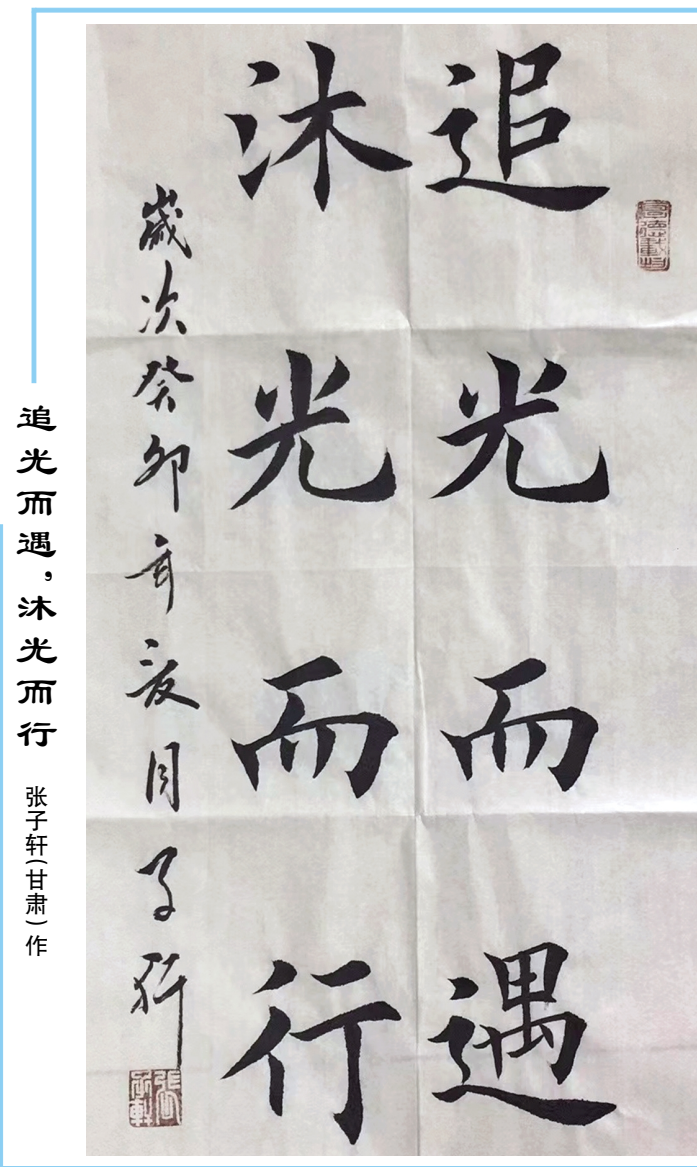 追光而遇
沐光而行
歲次癸卯年夏月子軒
追光而遇，沐光而行
张子轩（甘肃）作